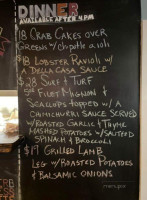 DINNER
AVAILABLE AFTER 4PM
$18 CRAB CAKES OVER
GREENS W/ chipotle aioli
$18 LOBSTER RAVIOLI W/
A DELLA CASA SAUCE
$28 SURF & TURF
5oz FILET MIGNON &
SCALLOPS TOPPED W/ A
CHIMICHURRI SAUCE SERVED
W/ ROASTED GARLIC & THYME
MASHED POTATOES W/ SAUTEED
SPINACH & BROCCOLI
$19 GRILLED LAMB
LEG W/ ROASTED POTATOES
& BALSAMIC ONIONS